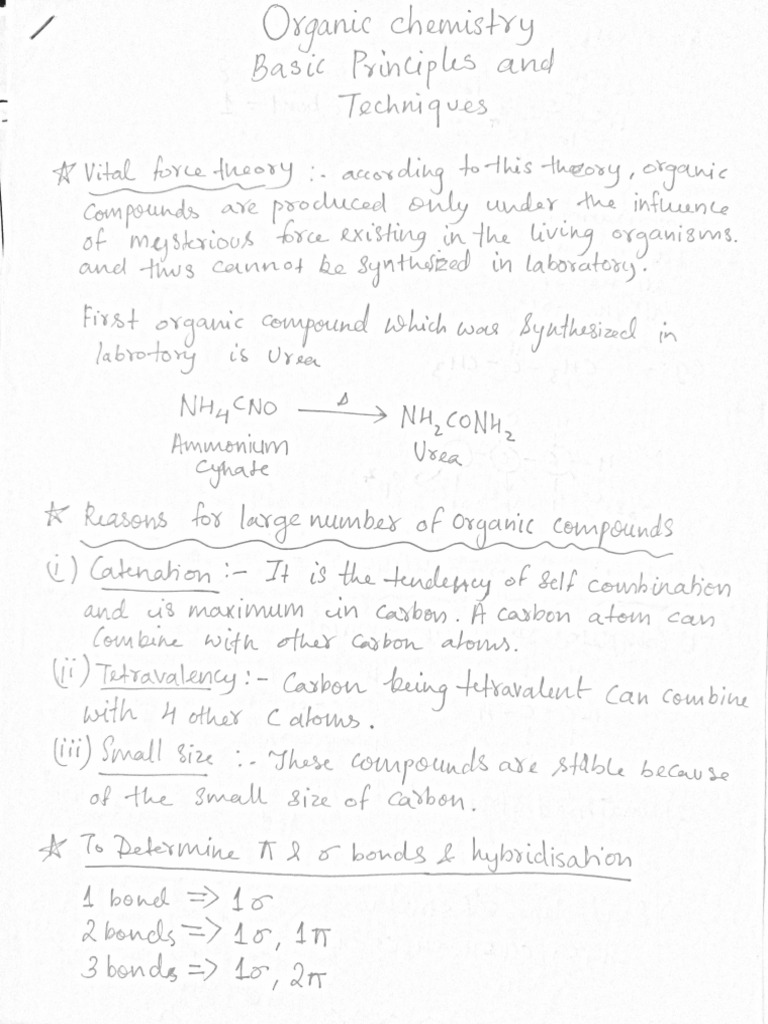 Organic chemistry
Basic Principles and
Techniques
☆ Vital force theory :- according to this theory, organic
compounds are produced only under the influence
of mysterious force existing in the living organisms.
and thus cannot be synthesized in laboratory.
First organic compound which was synthesized in
labrotory is Urea
NH₄CNO —Δ→ NH₂CONH₂
Ammonium Urea
Cynate
☆ Reasons for large number of organic compounds
(i) Catenation :- It is the tendency of self combination
and is maximum in carbon. A carbon atom can
combine with other carbon atoms.
(ii) Tetravalency :- Carbon being tetravalent can combine
with 4 other C atoms.
(iii) Small size :- These compounds are stable because
of the small size of carbon.
☆ To Determine π & σ bonds & hybridisation
1 bond => 1σ
2 bonds => 1σ, 1π
3 bonds => 1σ, 2π